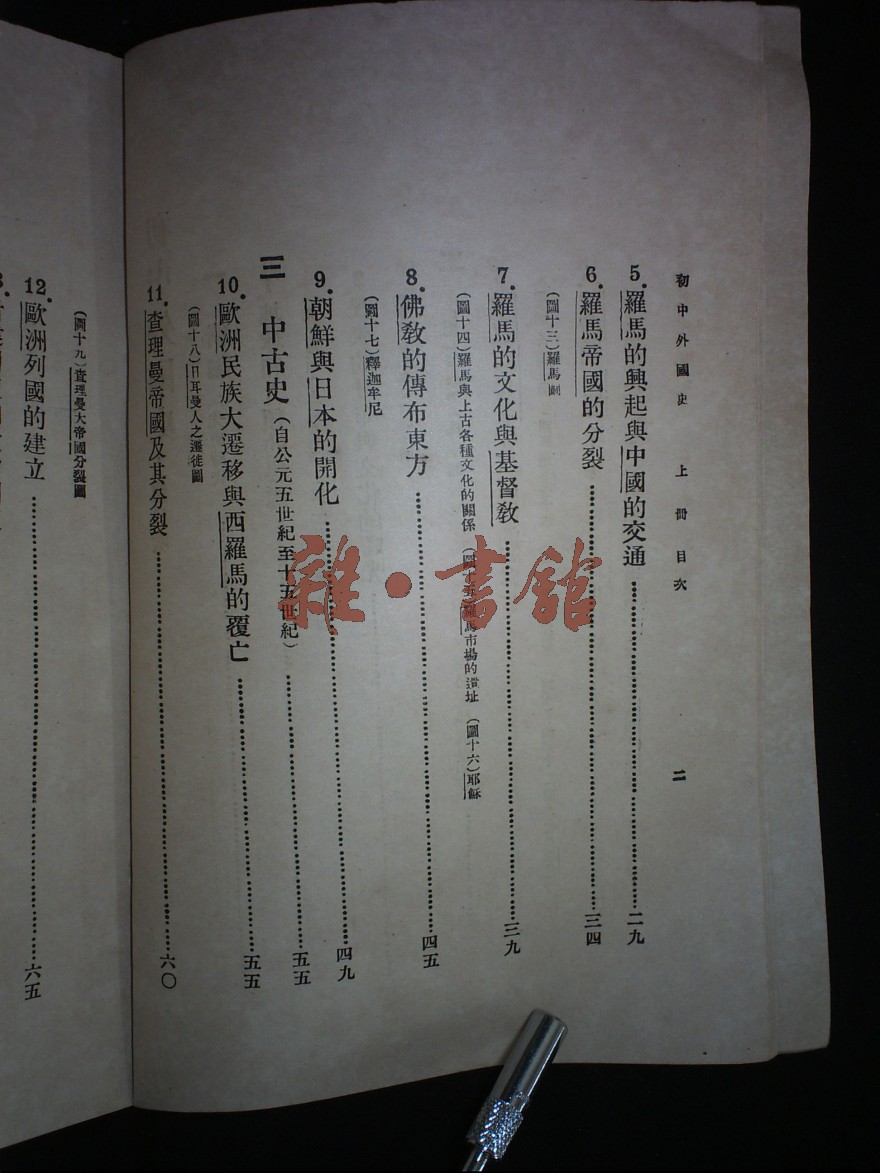 初中外國史 上冊目次 二
5. 羅馬的興起與中國的交通……二九
6. 羅馬帝國的分裂……三四
(圖十三)羅馬
7. 羅馬的文化與基督教……三九
(圖十四)羅馬與上古各種文化的關係 (圖十五)羅馬市場的遺址 (圖十六)耶穌
8. 佛教的傳布東方……四五
(圖十七)釋迦牟尼
9. 朝鮮與日本的開化……四九
三 中古史(自公元五世紀至十五世紀)……五五
10. 歐洲民族大遷移與西羅馬的覆亡……五五
(圖十八)日耳曼人之遷徙圖
11. 查理曼帝國及其分裂……六〇
(圖十九)查理曼大帝國分裂圖
12. 歐洲列國的建立……六五
雜·書館